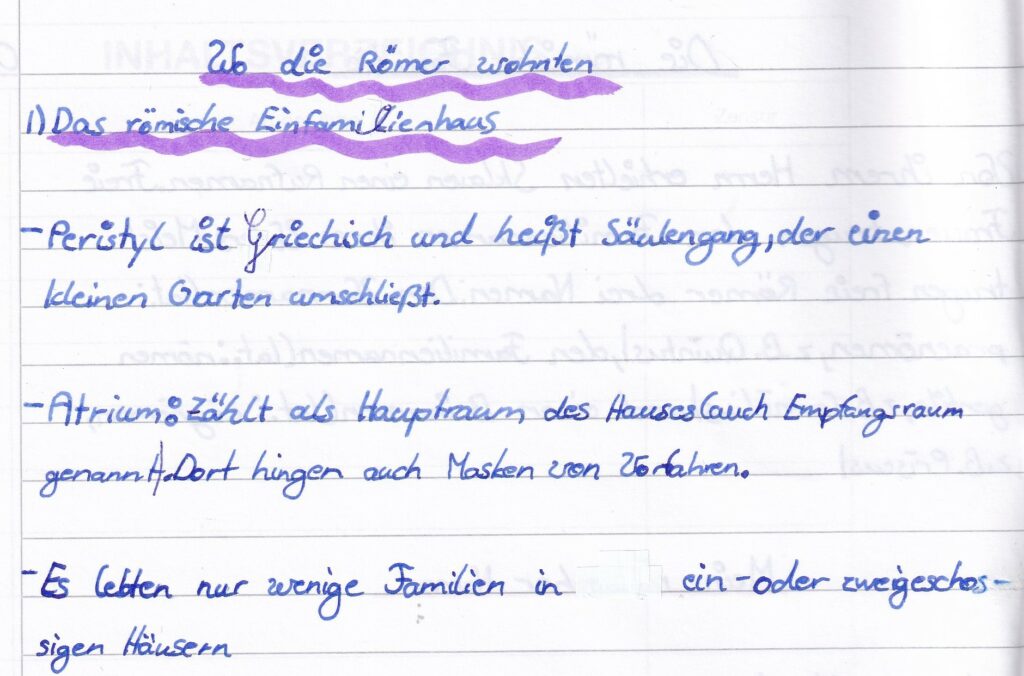 Wo die Römer wohnten
1) Das römische Einfamilienhaus
- Peristyl ist Griechisch und heißt Säulengang, der einen
kleinen Garten umschließt.
- Atrium: zählt als Hauptraum des Hauses (auch Empfangsraum
genannt). Dort hingen auch Masken von Vorfahren.
- Es lebten nur wenige Familien in ein- oder zweigeschos-
sigen Häusern